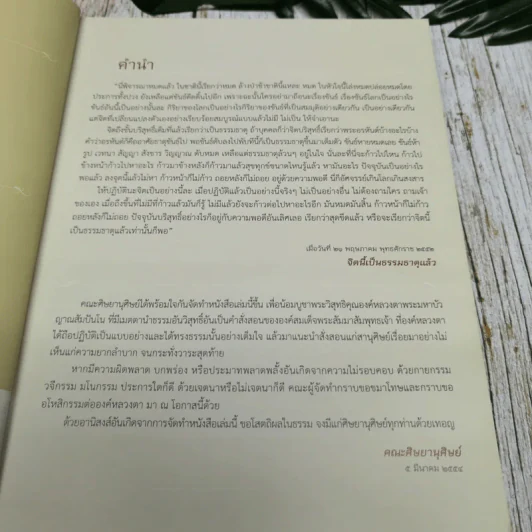 คำนำ
"มีพิจารณาหมดแล้ว ในชาตินี้เรียกว่าหมด ล้างป่าช้าชาตินี้แหละ หมด ในหัวใจนี้ไล่งหมดปล่อยหมดโดย
ประการทั้งปวง ยังเหลือแต่ขันธ์
ขันธ์อันนี้เป็นอย่างนั้นละ กิริยาของโลกเป็นอย่างไรกิริยาของขันธ์ที่เป็นสมมุติอย่างเดียวกัน เป็นอย่างเดียวกัน
แต่จิตที่เปลี่ยนแปลงตัวเองอย่างเรียบร้อยสมบูรณ์แบบแล้วไม่มี ไม่เป็น ให้จำเอานะ
จิตถึงขั้นบริสุทธิ์เต็มที่แล้วเรียกว่าเป็นธรรมธาตุ ถ้าบุคคลก็ว่าจิตบริสุทธิ์เรียกว่าพระอรหันต์ก็ว่าอะไรบ้าง
รูป เวทนา สัญญา สังขาร วิญญาณ ดับหมด เหลือแต่ธรรมธาตุล้วนๆ อยู่ในใจ
ข้างหน้าก้าวไปหาอะไร ก้าวมาข้างหลังก็ก้าวมาแล้วสุขทุกข์ขนาดไหนรู้แล้ว
พอแล้ว ลงจุดนี้แล้วไม่หา ก้าวหน้าก็ไม่ก้าว ถอยหลังก็ไม่ถอย อยู่ด้วยความพอดี นี่ก็อัศจรรย์เกินโลกเกินสงสาร
ให้ปฏิบัตินะจิตเป็นอย่างนี้ละ เมื่อปฏิบัติแล้วเป็นอย่างนี้จริงๆ ไม่เป็นอย่างอื่น ไม่ต้องถามใคร ถามเจ้า
ของเอง เมื่อถึงขั้นที่ไม่มีที่ก้าวแล้วมันก็รู้ ไม่มีแล้วยังจะก้าวต่อไปหาอะไรอีก มันหมดมันสิ้น ก้าวหน้าก็ไม่ก้าว
ถอยหลังก็ไม่ถอย ปัจจุบันบริสุทธิ์อย่างไรก็อยู่กับความพอดีอันเลิศเลอ เรียกว่าสุดขีดแล้ว หรือจะเรียกว่าจิตนี้
เป็นธรรมธาตุแล้วเท่านั้นก็พอ"
เมื่อวันที่ ๒๑ พฤษภาคม พุทธศักราช ๒๕๕๒
จิตนี้เป็นธรรมธาตุแล้ว
คณะศิษยานุศิษย์ได้พร้อมใจกันจัดทำหนังสือเล่มนี้ขึ้น เพื่อน้อมบูชาพระวิสุทธิคุณองค์หลวงตาพระมหาบัว
ญาณสัมปันโน ที่มีเมตตานำธรรมอันวิสุทธิ์อันเป็นคำสั่งสอนขององค์สมเด็จพระสัมมาสัมพุทธเจ้า ที่องค์หลวงตา
ได้ถือปฏิบัติเป็นแบบอย่างและได้ทรงธรรมนั้นอย่างเต็มใจ แล้วมาแนะนำสั่งสอนแก่สานุศิษย์เรื่อยมาอย่างไม่
เห็นแก่ความยากลำบาก จนกระทั่งวาระสุดท้าย
หากมีความผิดพลาด บกพร่อง หรือประมาทพลาดพลั้งอันเกิดจากความไม่รอบคอบ ด้วยกายกรรม
วจีกรรม มโนกรรม ประการใดก็ดี ด้วยเจตนาหรือไม่เจตนาก็ดี คณะผู้จัดทำกราบขอขมาโทษและกราบขอ
อโหสิกรรมต่อองค์หลวงตา มา ณ โอกาสนี้ด้วย
ด้วยอานิสงส์อันเกิดจากการจัดทำหนังสือเล่มนี้ ขอโสตถิผลในธรรม จงมีแก่ศิษยานุศิษย์ทุกท่านด้วยเทอญ
คณะศิษยานุศิษย์
๕ มีนาคม ๒๕๕๔